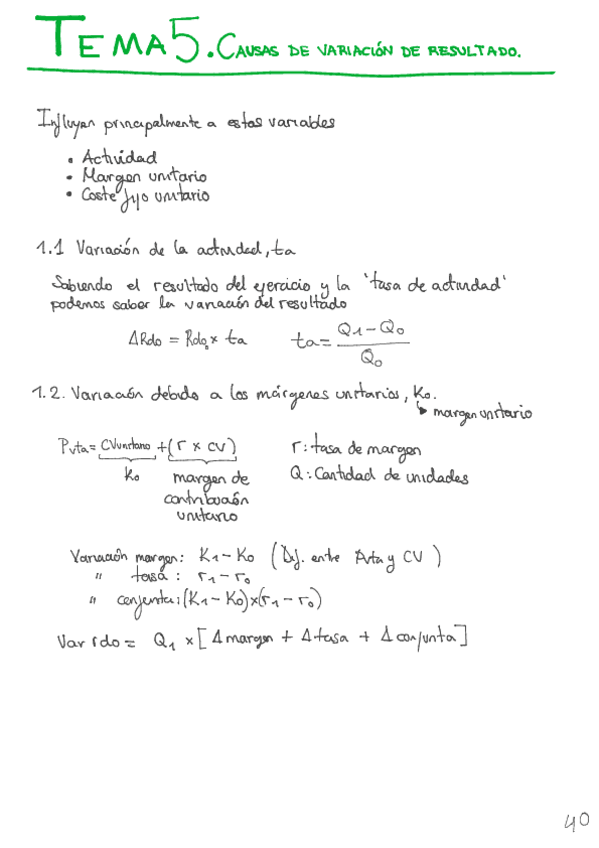 TEMA 5. CAUSAS DE VARIACIÓN DE RESULTADO.
Influyen principalmente a estas variables
• Actividad
• Margen unitario
• Coste fijo unitario
1.1 Variación de la actividad, ta
Sabiendo el resultado del ejercicio y la 'tasa de actividad'
podemos saber la variación del resultado
ΔRdo = Rdo₀ x ta    ta = (Q1 - Q0) / Q0
1.2. Variación debido a los márgenes unitarios, K0.
↳ margen unitario
Pvta = CVunitario + (r x cv)    r: tasa de margen
K0    margen de contribución unitario    Q: Cantidad de unidades
Variación margen: K1 - K0 (Dif. entre Pvta y CV)
" tasa: r1 - r0
" conjunta: (K1 - K0) x (r1 - r0)
Var rdo = Q1 x [Δ margen + Δ tasa + Δ conjunta]
40